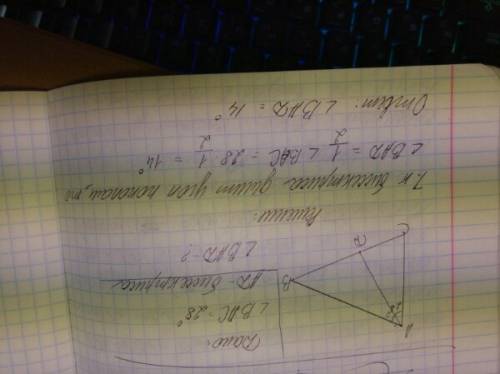 Дано:
∠BAC = 28°
AD - биссектриса
∠BAD - ?
A
B
C
D
28°
Решение:
Т.к биссектриса делит угол пополам, то
∠BAD = 1/2 ∠BAC = 28 · 1/2 = 14°
Ответ: ∠BAD = 14°